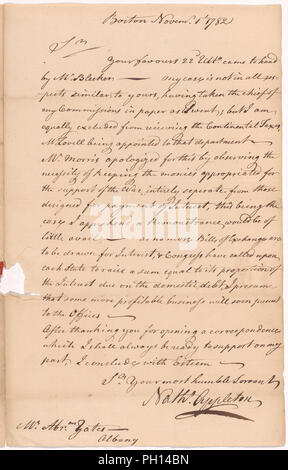 Boston Novemr. 1st 1782
Sir
Your favours 22d Ulto. came to hand
by Mr. Bleeker — my case is not in all res-
pects similar to yours, having taken the chief of
my Commissions in paper as I went; but I am
equally excluded from receiving the Continental Taxes
Mr. Lovell being appointed to that department
Mr. Morris apologized for this by observing the
necessity of keeping the monies appropriated for
the support of the War, intirely seperate from those
designed for payment of Interest, this being the
case I apprehend a Remonstrance would be of
little avail — as no more Bills of Exchange are
to be drawn for Interest, & Congress have called upon
each State to raise a sum equal to its proportion of
the Interest due on the domestic debt, I presume
that some more profitable business will soon present
to the Offices —
After thanking you for opening a correspondence
which I shall always be ready to support on my
part, I conclude with Esteem —
Sir Your most humble Servant
Nathl. Appleton
Mr. Abrm. Yates
Albany
alamy
alamy stock photo
PH14BN
www.alamy.com